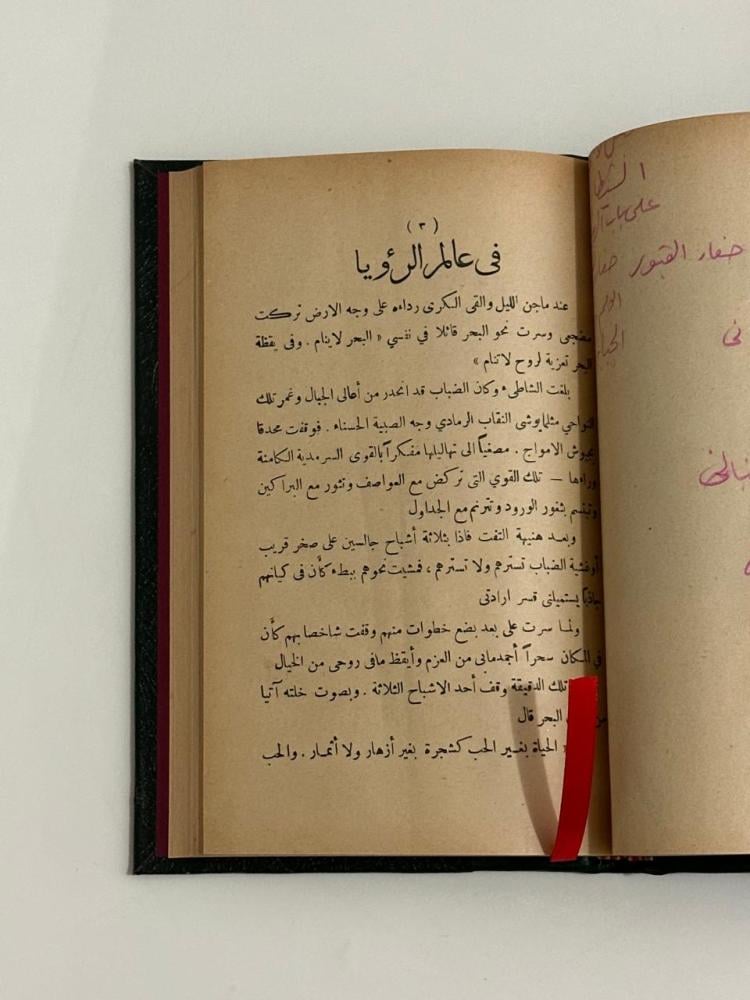 ( ٣ )
في عالم الرؤيا
عند ماجن الليل والقى الكرى رداءه على وجه الارض تركت
مضجعي وسرت نحو البحر قائلا في نفسي « البحر لاينام . وفى يقظة
البحر تعزية لروح لاتنام »
بلغت الشاطىء وكان الضباب قد انحدر من أعالى الجبال وغمر تلك
النواحي مثلما يوشى النقاب الرمادي وجه الصبية الحسناء . فوقفت محدقا
بجيوش الامواج . مصغياً الى تهاليلها مفكراً بالقوى السرمدية الكامنة
وراءها — تلك القوي التى تركض مع العواصف وتثور مع البراكين
وتبتسم بثغور الورود وتترنم مع الجداول
وبعد هنيهة التفت فاذا بثلاثة أشباح جالسين على صخر قريب
أوغشية الضباب تسترهم ولا تسترهم ، فمشيت نحوهم ببطء كأن فى كيانهم
جاذبا يستميلنى قسر ارادتى
ولما سرت على بعد بضع خطوات منهم وقفت شاخصا بهم كأن
في المكان سحراً أجمد مابى من العزم وأيقظ مافى روحى من الخيال
تلك الدقيقة وقف أحد الاشباح الثلاثة . وبصوت خلته آتيا
من البحر قال
الحياة بغير الحب كشجرة بغير أزهار ولا أثمار . والحب
الشيطان
على باب
حفار القبور
نى